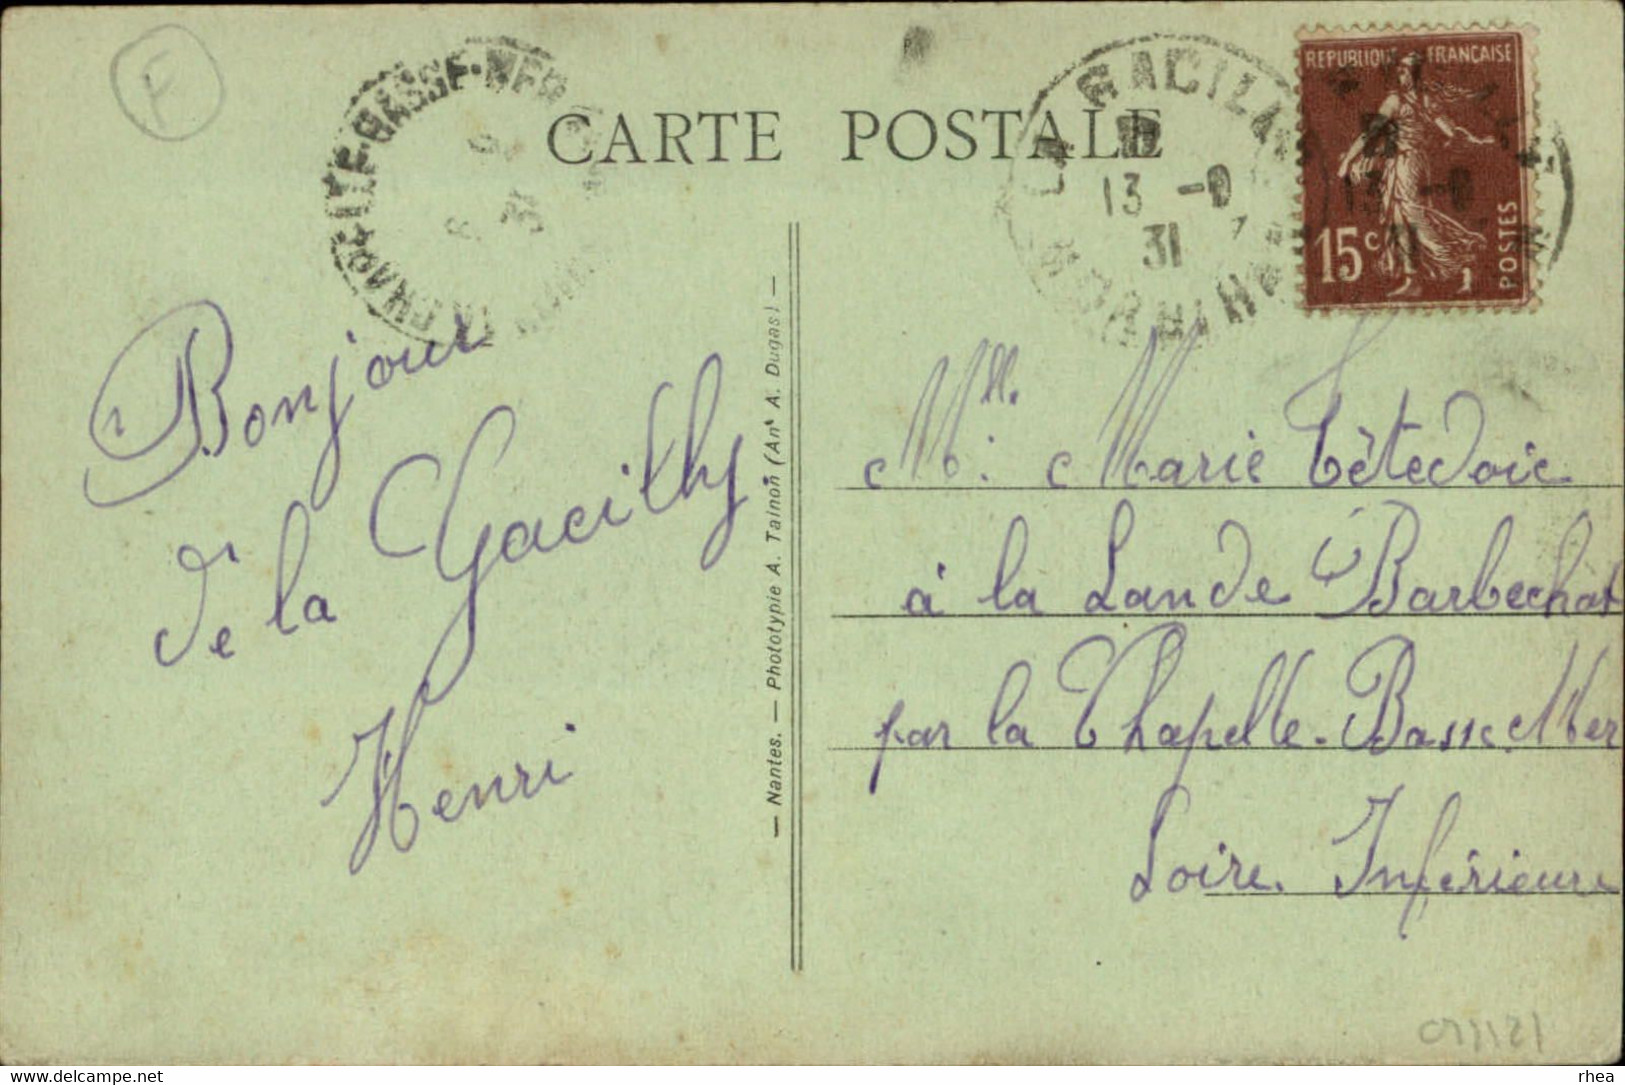 F
LA CHAPELLE-BASSE-MER
31
CARTE POSTALE
LA GACILLY
13 -8
31
MORBIHAN
REPUBLIQUE FRANÇAISE
15c
POSTES
Bonjour
de la Gacilly
Henri
— Nantes. — Phototypie A. Talnon (Anᵗ A. Dugas) —
Mlle. Marie Têtedoie
à la Lande Barbechat
par la Chapelle-Basse Mer
Loire Inférieure
rhea